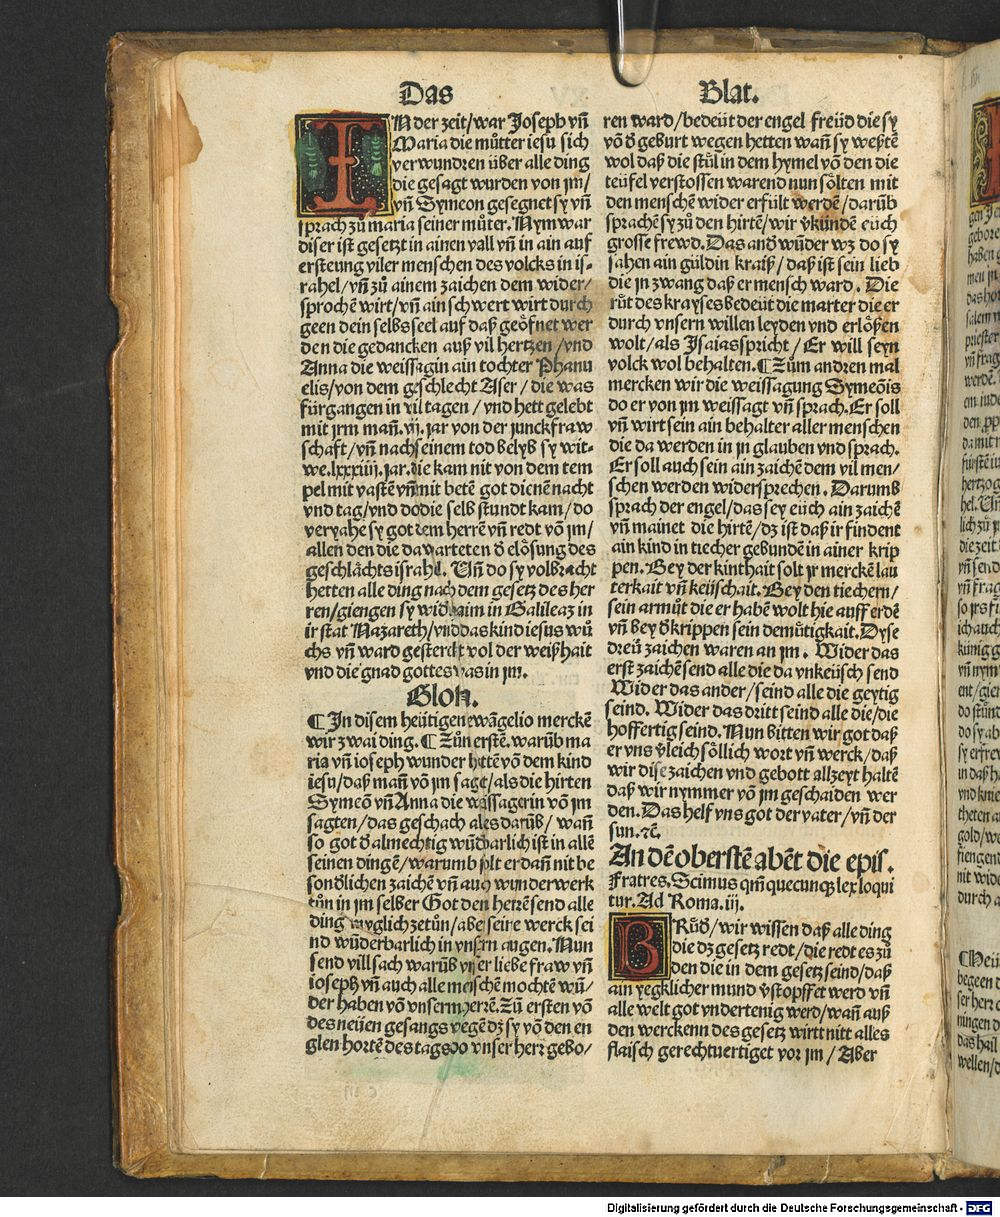 Das
Blat.
IN der zeit/war Joseph vñ
Maria die můtter iesu sich
verwundren über alle ding
die gesagt wurden von jm/
vñ Symeon gesegnet sy vñ
sprach zů maria seiner můter. Nym war
diser ist gesetzt in ainen vall vñ in ain auf
ersteung viler menschen des volcks in is-
rahel/vñ zů ainem zaichen dem wider/
sprochē wirt/vñ ain schwert wirt durch
geen dein selbs seel auf daß geöfnet wer
den die gedancken auß vil hertzen/vnd
Anna die weissagin ain tochter Phanu
elis/von dem geschlecht Aser/die was
fürgangen in vil tagen/vnd hett gelebt
mit jrm mañ.vij.jar von der junckfraw
schaft/vñ nach seinem tod belyb sy wit-
we.lxxxiiij.jar.die kam nit von dem tem
pel mit vastē vñ mit betē got dienē nacht
vnd tag/vnd do die selb stund kam/do
veryahe sy got dem herrē vñ redt vō jm/
allen den die da warteten d̄ elösung des
geschlächts israhl. Vñ do sy volbracht
hetten alle ding nach dem gesetz des her
ren/giengen sy wid̄ haim in Galileaz in
ir stat Nazareth/vnd das kind iesus wů
chs vñ ward gesterckt vol der weißhait
vnd die gnad gottes was in jm.
Gloß.
¶ In disem heütigen ewāgelio merckē
wir zwai ding.¶ Zům erstē.warūb ma
ria vñ ioseph wunder hettē vō dem kind
iesu/daß mañ vō jm sagt/als die hirten
Symeō vñ Anna die weissagerin vō jm
sagten/das geschach ales darūb/wañ
so got d̄ almechtig wūd̄barlich ist in allē
seinen dingē/warumb solt er dañ nit be
sond̄lichen zaichē vñ auch wunderwerk
tůn in jm selber Got den herrē send alle
ding müglich zetůn/aber seine werck sei
nd wūderbarlich in vnsern augen. Nun
send vill sach warūb vnser liebe fraw vñ
ioseph vñ auch alle menschē mochtē wū/
der haben vō vnserm herrē. Zů ersten vō
des neüen gesangs wegē dz sy vō den en
glen hortē des tags do vnser herr gebo/
ren ward/bedeüt der engel freüd die sy
vō d̄ geburt wegen hetten wañ sy weßtē
wol daß die stůl in dem hymel vō den die
teüfel verstossen warend nun sölten mit
den menschē wider erfült werdē/darūb
sprachē sy zů den hirtē/wir v̄kündē euch
grosse frewd. Das and̄ wūder wz do sy
sahen ain güldin kraiß/daß ist sein lieb
die in zwang daß er mensch ward. Die
růt des krayses bedeüt die marter die er
durch vnsern willen leyden vnd erlößen
wolt/als Isaias spricht/Er will seyn
volck wol behalten.¶ Zům andren mal
mercken wir die weissagung Symeōis
do er von jm weissagt vñ sprach.Er soll
vñ wirt sein ain behalter aller menschen
die da werden in jn glauben vnd sprach.
Er soll auch sein ain zaichē dem vil men/
schen werden widersprechen. Darumb
sprach der engel/das sey eüch ain zaichē
vñ mainet die hirtē/dz ist daß ir findent
ain kind in tiecher gebundē in ainer krip
pen. Bey der kinthait solt jr merckē lau
terkait vñ keüschait. Bey den tiechern/
sein armůt die er habē wolt hie auff erdē
vñ bey d̄ krippen sein demůtigkait. Dyse
dreü zaichen waren an jm. Wider das
erst zaichē send alle die da vnkeüsch send
Wider das ander/seind alle die geytig
seind. Wider das dritt seind alle die/die
hoffertig seind. Nun bitten wir got daß
er vns v̄leich söllich wort vñ werck/daß
wir dise zaichen vnd gebott allzeyt haltē
daß wir nymmer vō jm geschaiden wer
den. Das helf vns got der vater/vñ der
sun.ꝛc̄.
An dē oberstē abēt die epis.
Fratres. Scimus qm̄ quecunqꝫ lex loqui
tur. Ad Roma.iii.
BRůd̄/wir wissen daß alle ding
die dz gesetz redt/die redt es zů
den die in dem gesetz seind/daß
ain yegklicher mund v̄stopffet werd vñ
alle welt got vndertenig werd/wañ auß
den werckenn des gesetz wirtt nitt alles
flaisch gerechtuertiget vor jm/Aber
Digitalisierung gefördert durch die Deutsche Forschungsgemeinschaft - DFG